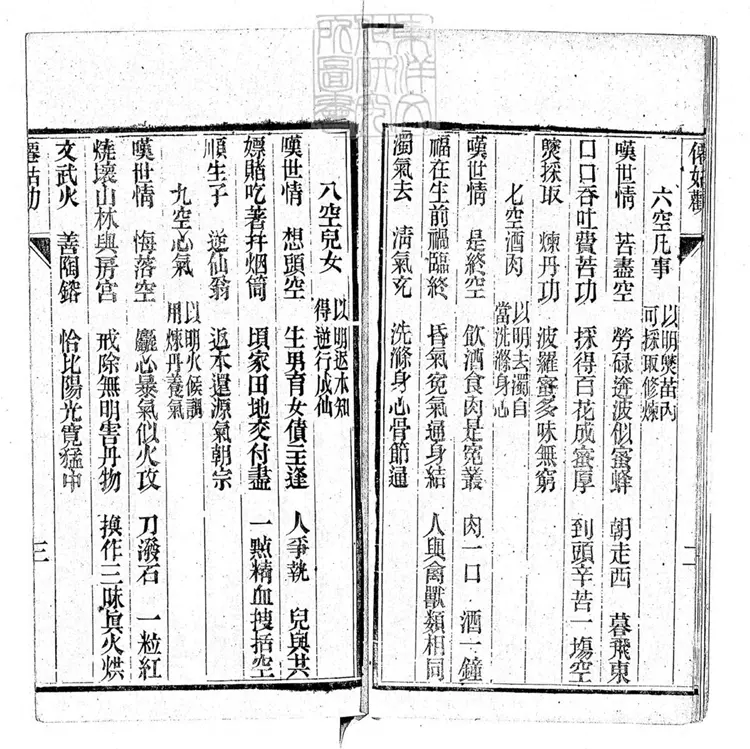 六空凡事 以明煲苗內可採取修煉
嘆世情 苦盡空 勞碌奔波似蜜蜂 朝走西 暮飛東
口口吞吐費苦功 採得百花成蜜厚 到頭辛苦一塲空
煲採取 煉丹功 波羅蜜多味無窮
七空酒肉 以明去濁自當洗滌身心
嘆世情 是終空 飲酒食肉是寃叢 肉一口 酒一鐘
福在生前禍臨終 昏氣寃氣通身結 人與禽獸類相同
濁氣去 淸氣充 洗滌身心骨節通
二
八空兒女 以明返本知得逆行成仙
嘆世情 想頭空 生男育女債主逢 人爭執 兒與其
嫖賭吃著幷烟筒 頃家田地交付盡 一㸃精血摟括空
順生子 逆仙翁 返本還源氣朝宗
九空心氣 以明火候調用煉丹養氣
嘆世情 悔落空 麤心暴氣似火攻 刀潑石 一粒紅
燒壞山林與房宮 戒除無明害丹物 換作三昧眞火烘
文武火 善陶鎔 恰比陽光寬猛中
三